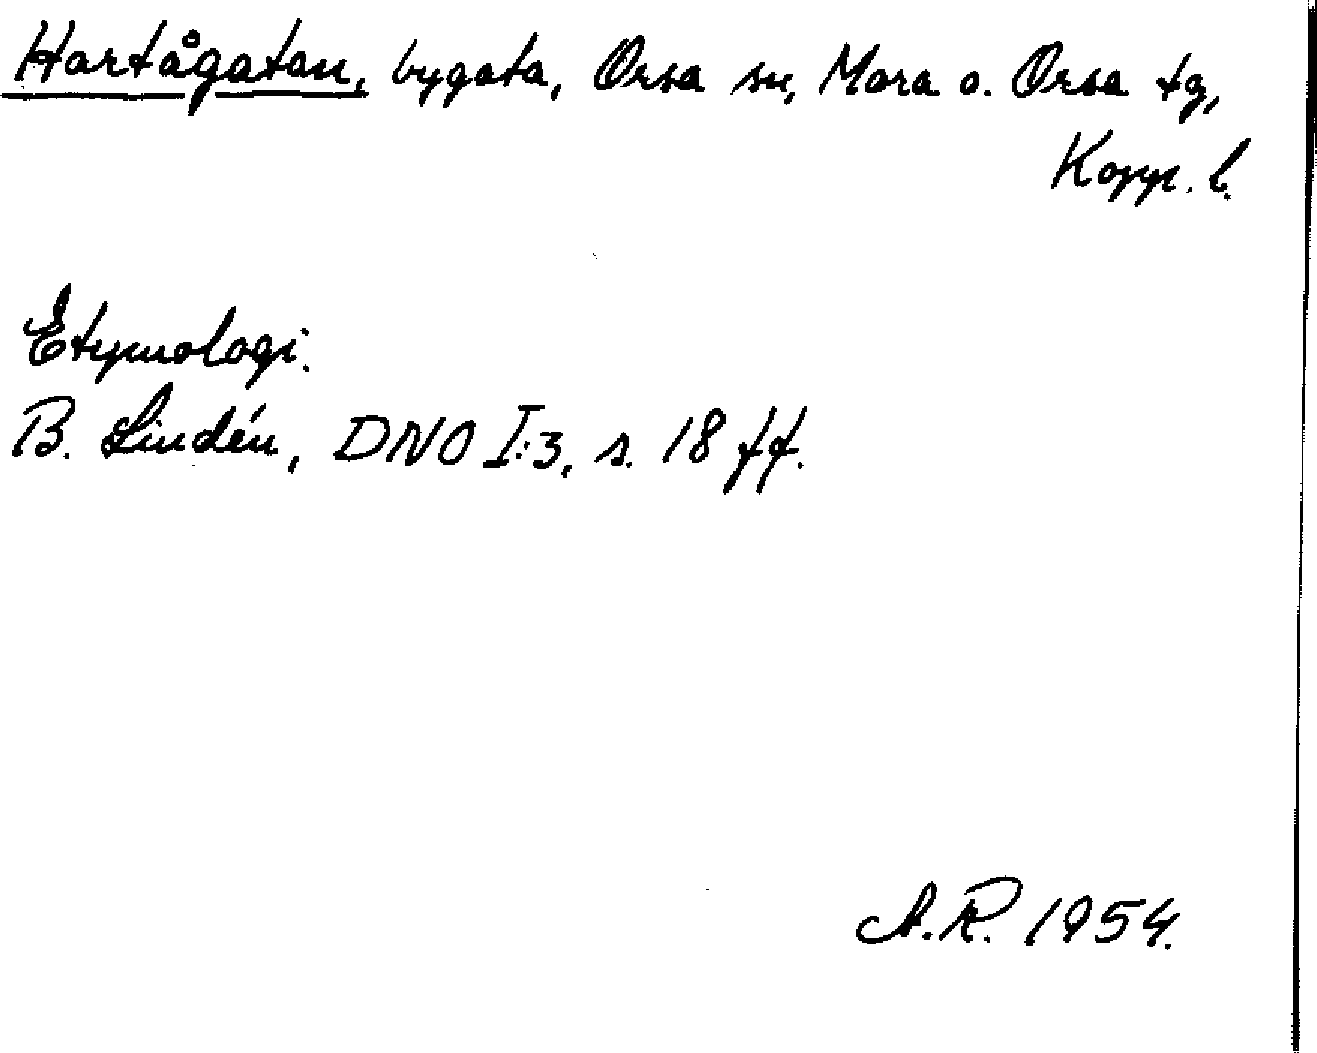 Hartågatan, bygata, Orsa sn, Mora o. Orsa tg,
Kopp. l.
Etymologi.
B. Lindén, DNO I:3, s. 18 ff.
A.R. 1954.